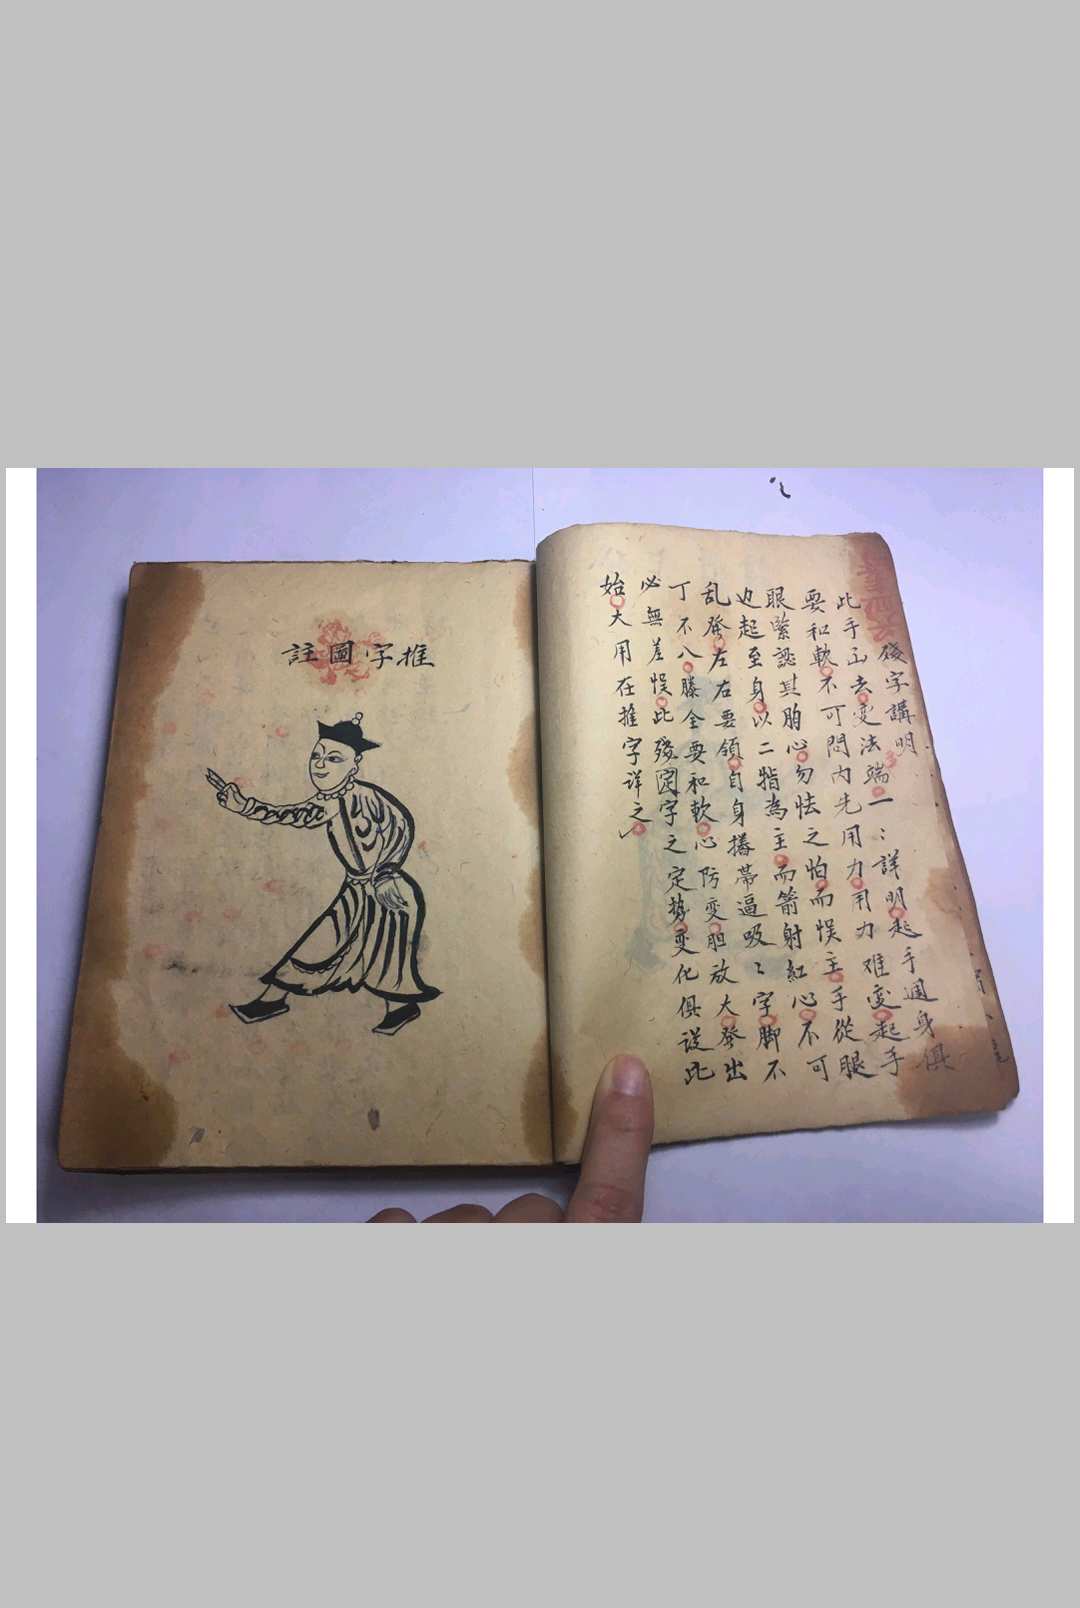 後字講明
此手出去变法端一〻詳明起手週身俱
要和軟不可悶内先用力用力难变起手
眼緊認其胸心勿怯之怕而悮主手從眼
也起至身以二指為主而箭射紅心不可
乱發左右要領自身攜帶逼吸〻字脚不
丁不八膝全要和軟心防变胆放大發出
必無差悮此發定字之定势变化俱説此
始大用在推字详之
推字圖註